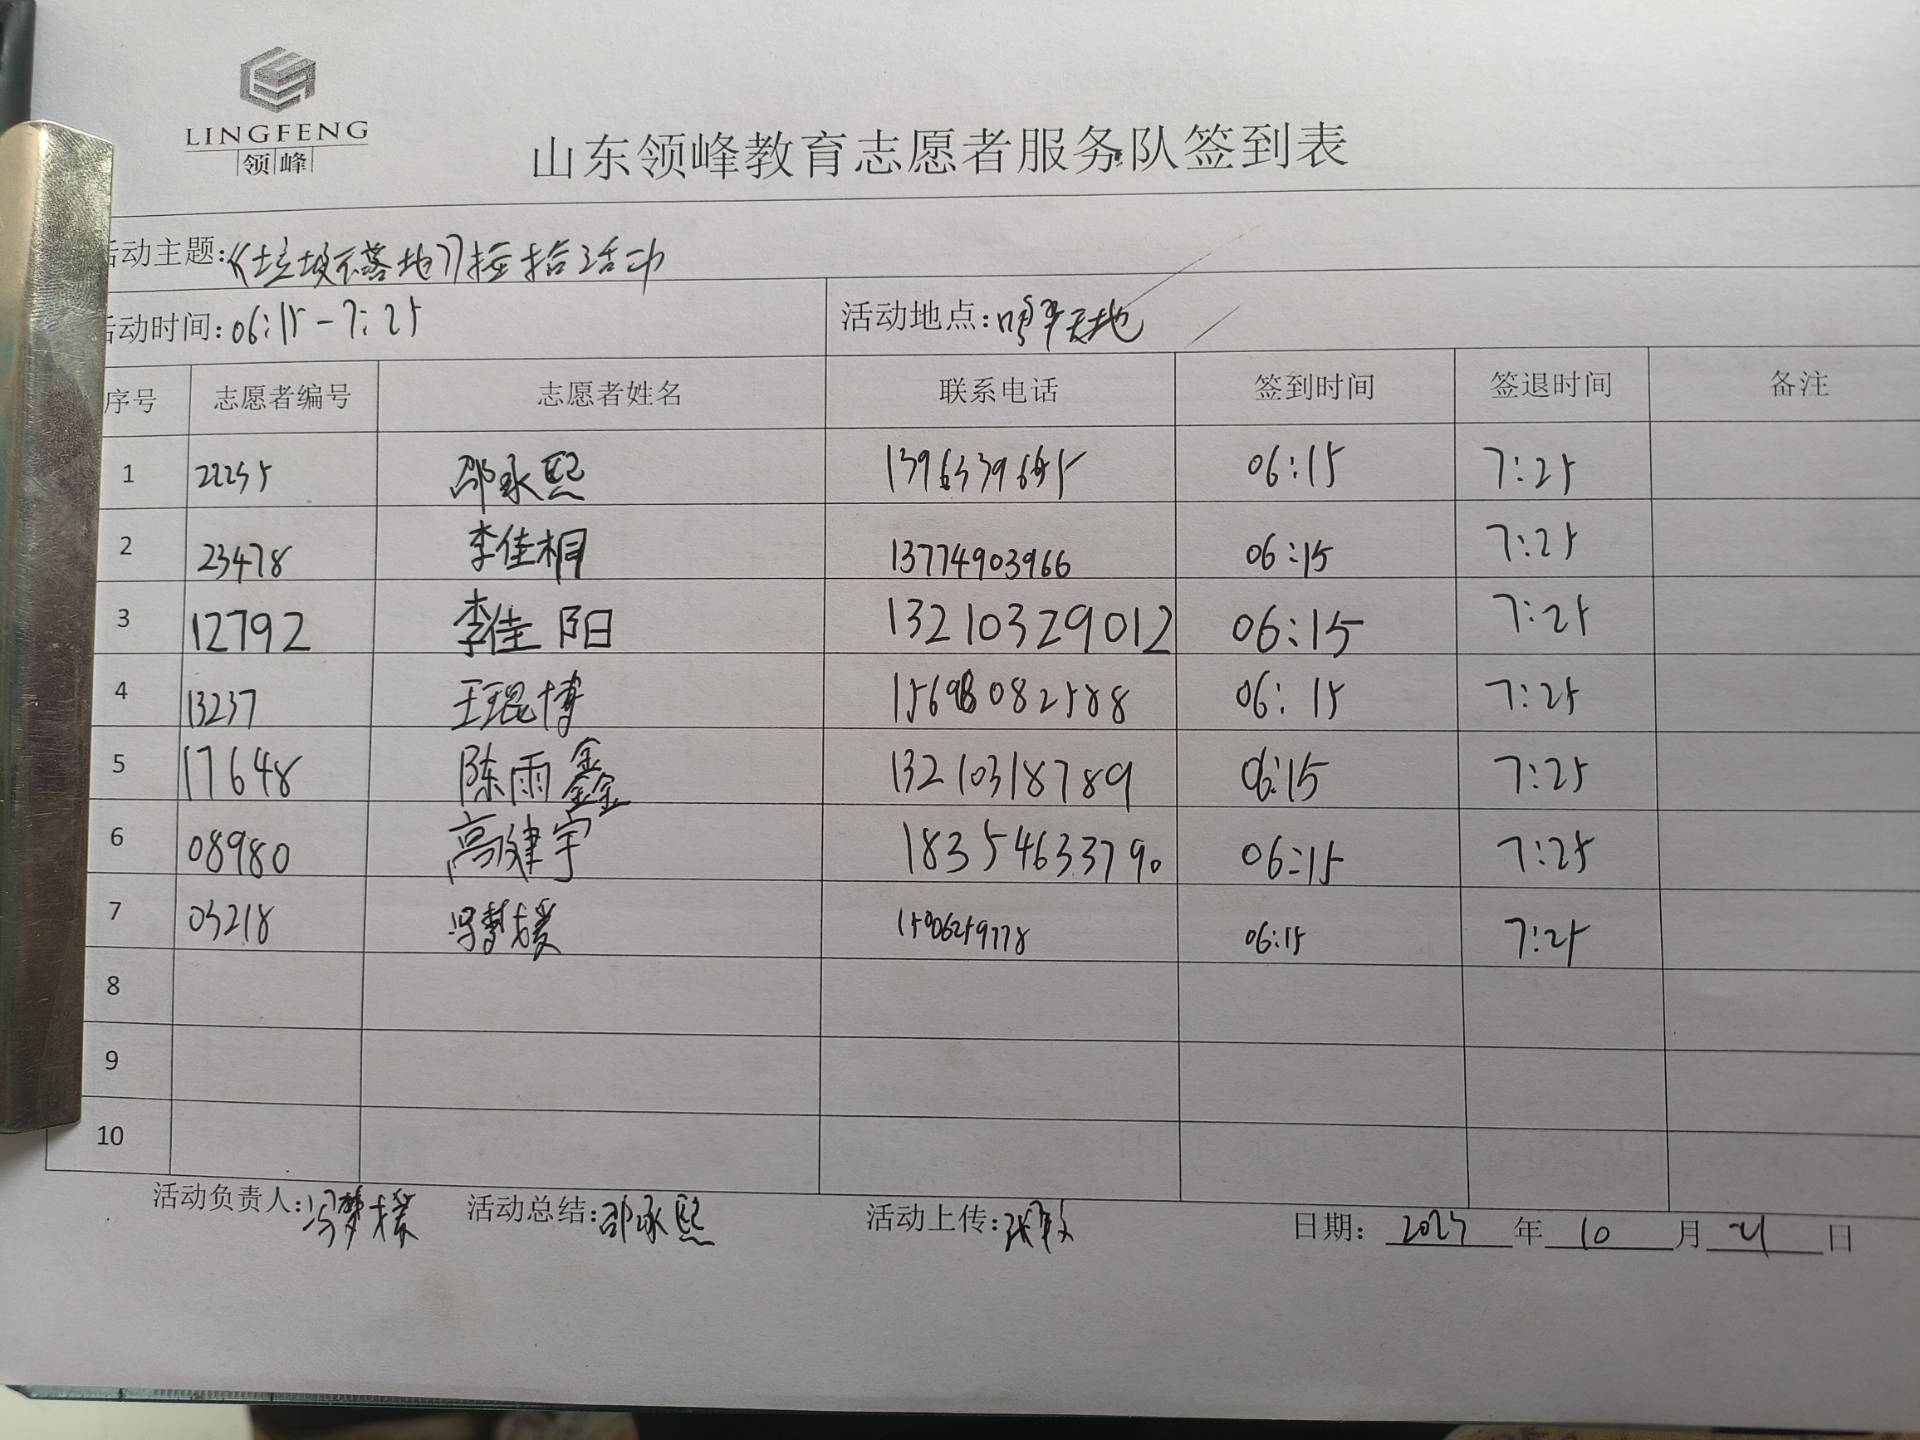 LINGFENG
领峰
山东领峰教育志愿者服务队签到表
活动主题:《垃圾不落地》捡拾活动
活动时间:06:15-7:25 活动地点:天地
序号 志愿者编号 志愿者姓名 联系电话 签到时间 签退时间 备注
1 22235 邵永熙 06:15 7:25
2 23478 李佳桐 13774903966 06:15 7:25
3 12792 李佳阳 13210329012 06:15 7:25
4 13237 王琨博 15698082588 06:15 7:25
5 17648 陈雨鑫 13210318789 06:15 7:25
6 08980 高健宇 18354633790 06:15 7:25
7 03218 冯梦媛 15006259778 06:15 7:25
8
9
10
活动负责人:冯梦媛 活动总结:邵永熙 活动上传: 日期: 2023 年 10 月 21 日